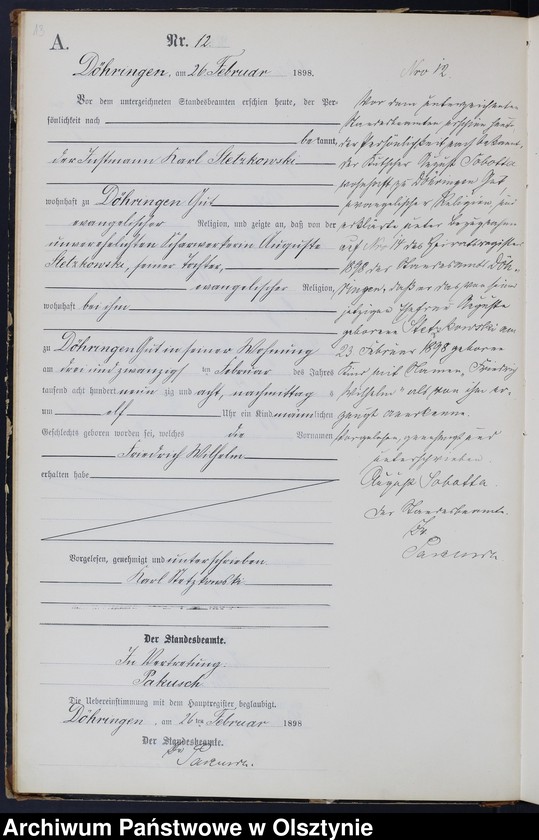 13
A.
Nr. 12
Döhringen, am 26 Februar 1898.
Vor dem unterzeichneten Standesbeamten erschien heute, der Per-
sönlichkeit nach
be kannt,
der Instmann Karl Stetzkowski
wohnhaft zu Döhringen Gut
evangelischer Religion, und zeigte an, daß von der
unverehelichten Scharwerkerin Auguste
Stetzkowski, seiner Tochter,
evangelischer Religion,
wohnhaft bei ihm
zu Döhringen Gut in seiner Wohnung
am drei und zwanzigsten Februar des Jahres
tausend acht hundert neun zig und acht, nachmittag s
um elf Uhr ein Kind männlichen
Geschlechts geboren worden sei, welches die Vornamen
Friedrich Wilhelm
erhalten habe
Vorgelesen, genehmigt und unterschrieben
Karl Stetzkowski
Der Standesbeamte.
In Vertretung.
Pakusch
Die Uebereinstimmung mit dem Hauptregister beglaubigt.
Döhringen, am 26ten Februar 1898
Der Standesbeamte.
Nro 12.
Vor dem unterzeichneten
Standesbeamten erschien heute
der Persönlichkeit nach bekannt,
der Kutscher August Sobotta
wohnhaft zu Döhringen Gut
evangelischer Religion, und
erklärte unter Bezugnahme
auf Nro 14 des Heiratsregisters
1898 des Standesamts Döh-
ringen, daß er das von seiner
jetzigen Ehefrau Auguste
geborene Stetzkowski am
23 Februar 1898 geborene
Kind mit Namen „Friedrich
Wilhelm" als von ihm er-
zeugt anerkenne.
Vorgelesen, genehmigt und
unterschrieben
August Sobotta.
Der Standesbeamte.
Archiwum Państwowe w Olsztynie